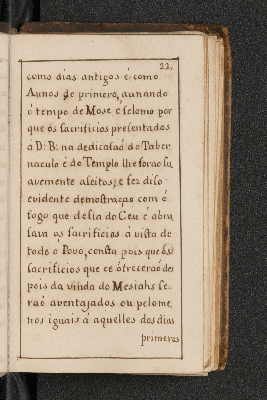 22.
como dias antigos é como
Annos de primero, aunando
ó tempo de Mose é selomo por
que ós sacrificios presentados
a D: B: na dedicasaõ do Taber
naculo é do Templo lhe foraõ su
avemente aseitos, e fez diso
evidente demostraçaõ com ó
fogo que desia do Ceu é abra
sava os sacrificios á vista de
todo ó Povo, consta pois que ós
sacrificios que ce ófreceraõ des
pois da vinda do Mesiahs se-
raõ aventajados ou pelome
nos iguais á aquelles dos dias
primeros